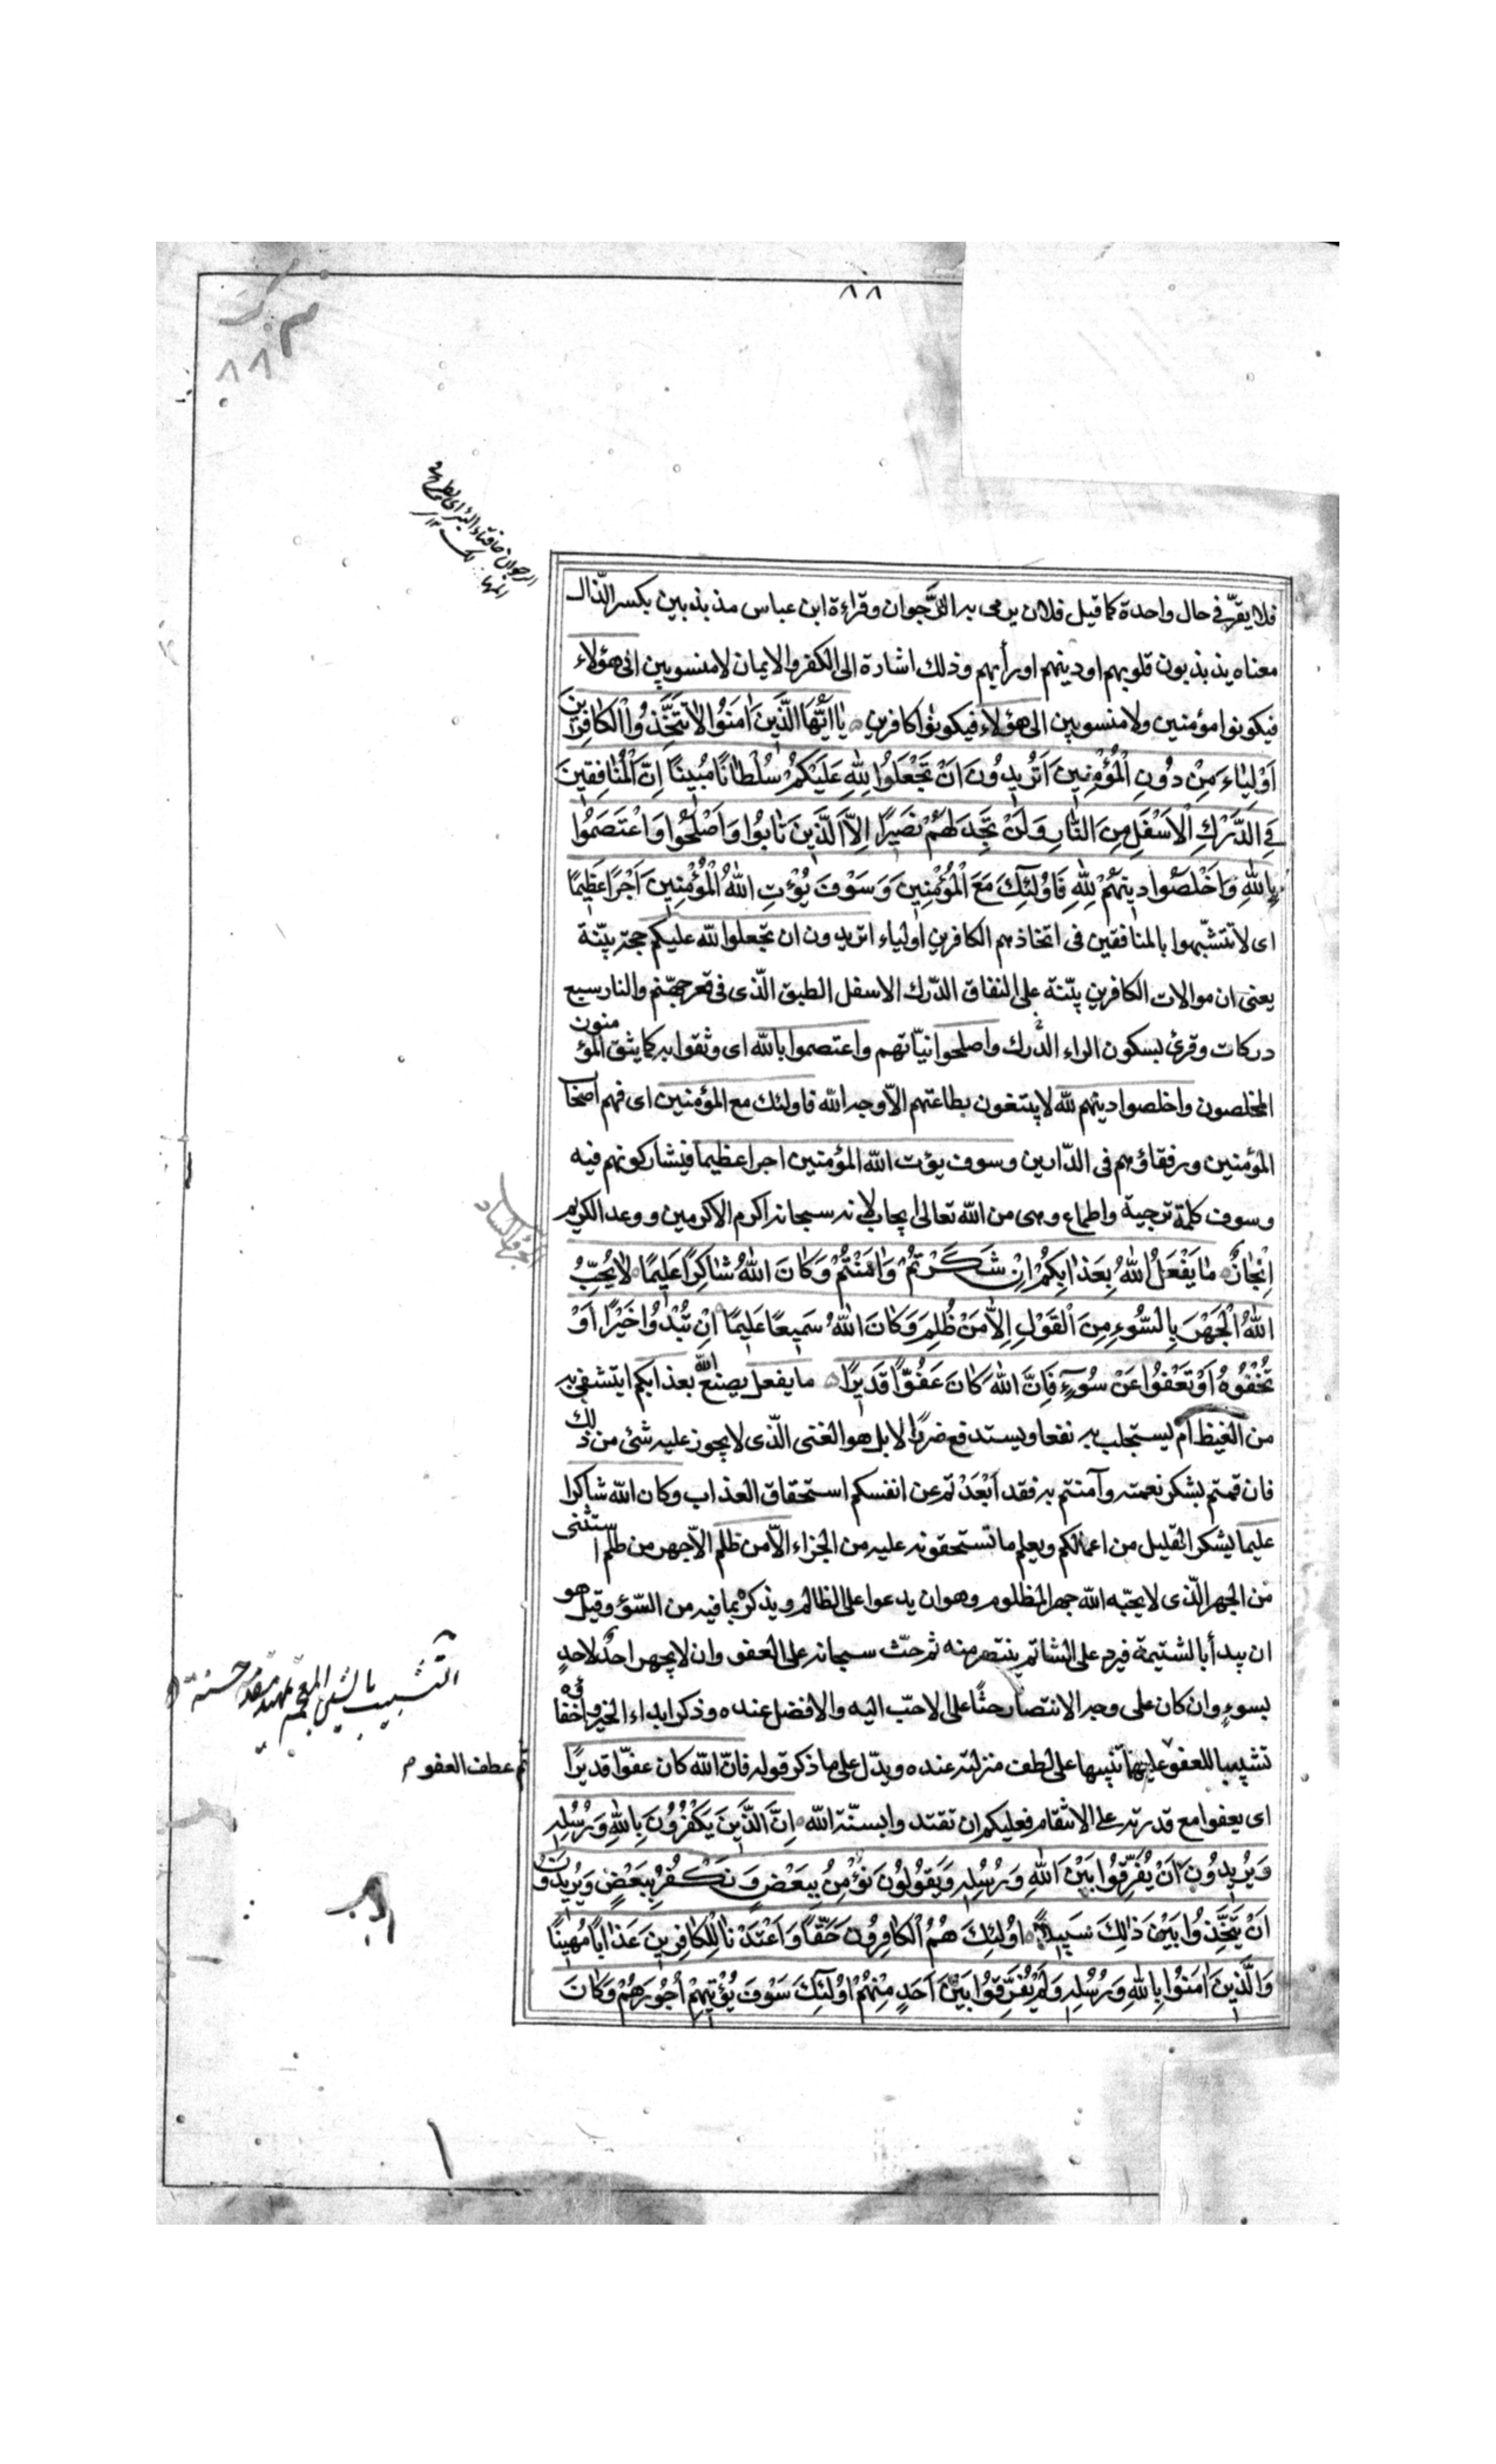 ٨٨
٨٨
فلا يقرّ فى حال واحدة كما قيل فلان يرمى به الرَّجوان وقراءة ابن عباس مذبذبين بكسر الذّال
معناه يذبذبون قلوبهم او دينهم او رأيهم وذلك اشارة الى الكفر والايمان لا منسوبين الى هؤلاء
فيكونوا مؤمنين ولا منسوبين الى هؤلاء فيكونوا كافرين يٰا اَيُّهَا الَّذينَ اٰمَنُوا لاٰ تَتَّخِذُوا الْكٰافِرينَ
اَوْلِيٰاءَ مِنْ دُونِ الْمُؤْمِنينَ اَتُريدُونَ اَنْ تَجْعَلُوا لِلّٰهِ عَلَيْكُمْ سُلْطٰانًا مُبينًا اِنَّ الْمُنٰافِقينَ
فِى الدَّرْكِ الْاَسْفَلِ مِنَ النّٰارِ وَلَنْ تَجِدَ لَهُمْ نَصيرًا اِلاَّ الَّذينَ تٰابُوا وَاَصْلَحُوا وَاعْتَصَمُوا
بِاللّٰهِ وَاَخْلَصُوا دينَهُمْ لِلّٰهِ فَاُولٰئِكَ مَعَ الْمُؤْمِنينَ وَسَوْفَ يُؤْتِ اللّٰهُ الْمُؤْمِنينَ اَجْرًا عَظيمًا
اى لا تتشبّهوا بالمنافقين فى اتخاذهم الكافرين اولياء اتريدون ان تجعلوا لله عليكم حجة بيّنة
يعنى ان موالات الكافرين بيّنة على النفاق الدّرك الاسفل الطبق الّذى فى قعر جهنّم والنار سبع
دركات وقرئ بسكون الراء الدَّرك واصلحوا نيّاتهم واعتصموا بالله اى وثقوا به كما يثق المؤمنون
المخلصون واخلصوا دينهم لله لا يبتغون بطاعتهم الاّ وجه الله فاولئك مع المؤمنين اى فهم اصحاب
المؤمنين ورفقاؤهم فى الدّارين وسوف يؤت الله المؤمنين اجرا عظيما فيشاركونهم فيه
وسوف كلمة ترجية واطماع وهى من الله تعالى ايجاب لانه سبحانه اكرم الاكرمين ووعد الكريم
اِنْجازٌ مٰا يَفْعَلُ اللّٰهُ بِعَذٰابِكُمْ اِنْ شَكَرْتُمْ وَاٰمَنْتُمْ وَكٰانَ اللّٰهُ شٰاكِرًا عَليمًا لاٰ يُحِبُّ
اللّٰهُ الْجَهْرَ بِالسُّوءِ مِنَ الْقَوْلِ اِلاّٰ مَنْ ظُلِمَ وَكٰانَ اللّٰهُ سَميعًا عَليمًا اِنْ تُبْدُوا خَيْرًا اَوْ
تُخْفُوهُ اَوْ تَعْفُوا عَنْ سُوءٍ فَاِنَّ اللّٰهَ كٰانَ عَفُوًّا قَديرًا ما يفعل يصنع الله بعذابكم ايتشفى به
من الغيظ ام يستجلب به نفعا ويستدفع ضررًا لا بل هو الغنى الّذى لا يجوز عليه شئ من ذلك
فان قمتم بشكر نعمته وآمنتم به فقد اَبْعَدْتم عن انفسكم استحقاق العذاب وكان الله شاكرا
عليما يشكر القليل من اعمالكم ويعلم ما تستحقونه عليه من الجزاء الاّ من ظلم الاّ جهر من ظلم استثنى
من الجهر الّذى لا يحبّه الله جهر المظلوم وهو ان يدعوا على الظالم ويذكره بما فيه من السّوء وقيل هو
ان يبدأ بالشتيمة فيرد على الشاتم ينتصر منه ثم حثّ سبحانه على العفو وان لا يجهر احدٌ لاحدٍ
بسوءٍ وان كان على وجه الانتصار حثًّا على الاحبّ اليه والافضل عنده وذكر ابداء الخير واخفائه
تشبيبا للعفو عليهما تنبيها على لطف منزلته عنده ويدّل على ما ذكر قوله فانّ الله كان عفوّا قديرًا
ثم عطف العفو م
اى يعفوا مع قدرته على الانتقام فعليكم ان تقتدوا بسنّة الله اِنَّ الَّذينَ يَكْفُرُونَ بِاللّٰهِ وَرُسُلِهِ
وَيُريدُونَ اَنْ يُفَرِّقُوا بَيْنَ اللّٰهِ وَرُسُلِهِ وَيَقُولُونَ نُؤْمِنُ بِبَعْضٍ وَنَكْفُرُ بِبَعْضٍ وَيُريدُونَ
اَنْ يَتَّخِذُوا بَيْنَ ذٰلِكَ سَبيلاً اُولٰئِكَ هُمُ الْكٰافِرُونَ حَقًّا وَاَعْتَدْنٰا لِلْكٰافِرينَ عَذٰابًا مُهينًا
وَالَّذينَ اٰمَنُوا بِاللّٰهِ وَرُسُلِهِ وَلَمْ يُفَرِّقُوا بَيْنَ اَحَدٍ مِنْهُمْ اُولٰئِكَ سَوْفَ يُؤْتيهِمْ اُجُورَهُمْ وَكٰانَ